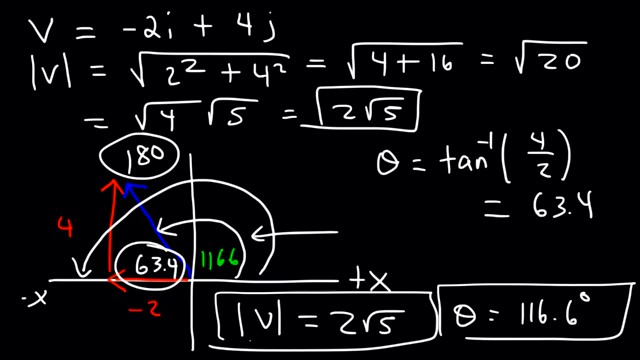 V = -2i + 4j
|v| = √(2² + 4²) = √(4 + 16) = √20
= √4 √5 = 2√5
180
θ = tan⁻¹(4/2)
= 63.4
4
63.4
1166
-x
-2
+x
|V| = 2√5
θ = 116.6°